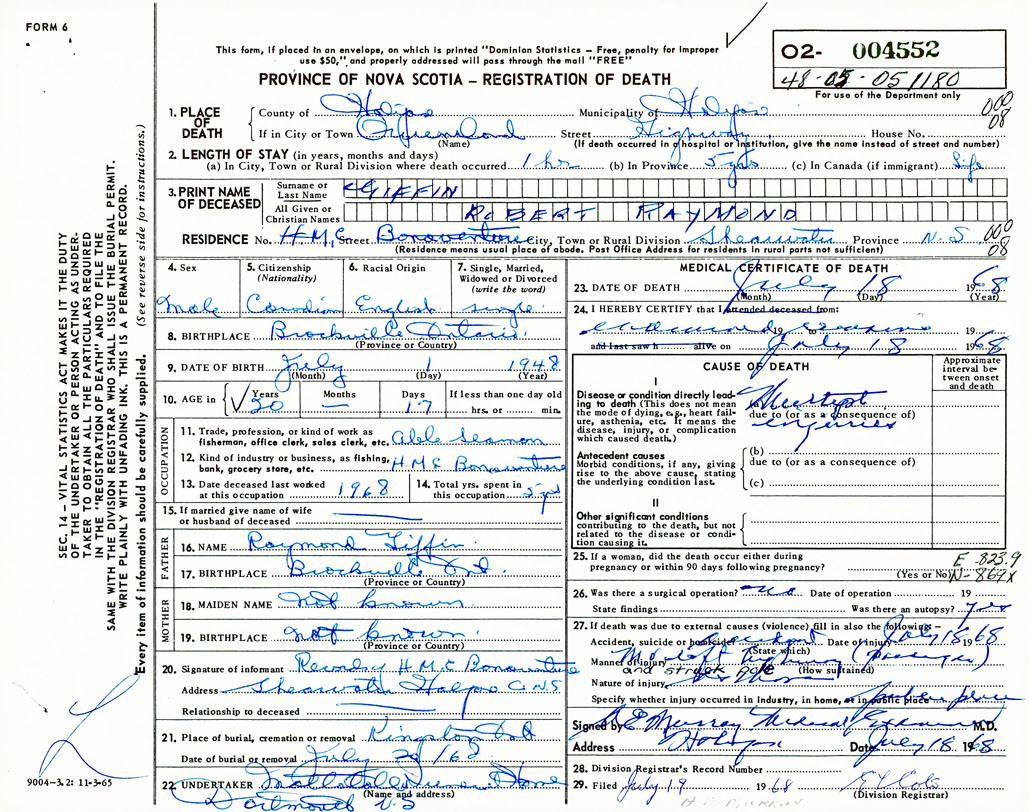 FORM 6
This form, if placed in an envelope, on which is printed "Dominion Statistics – Free, penalty for improper
use $50," and properly addressed will pass through the mail "FREE"
PROVINCE OF NOVA SCOTIA – REGISTRATION OF DEATH
02- 004552
48-05-051180
For use of the Department only
000
08
1. PLACE OF DEATH
County of Halifax Municipality of Halifax
If in City or Town Street Highway House No.
(Name) (If death occurred in a hospital or institution, give the name instead of street and number)
2. LENGTH OF STAY (in years, months and days)
(a) In City, Town or Rural Division where death occurred 1 hr (b) In Province 5 yrs (c) In Canada (if immigrant) Life
3. PRINT NAME OF DECEASED
Surname or Last Name GIFFIN
All Given or Christian Names ROBERT RAYMOND
RESIDENCE No. H.M.C. Street Bonaventure City, Town or Rural Division Shearwater Province N.S.
000
08
(Residence means usual place of abode. Post Office Address for residents in rural parts not sufficient)
4. Sex
Male
5. Citizenship (Nationality)
Canadian
6. Racial Origin
English
7. Single, Married, Widowed or Divorced (write the word)
single
8. BIRTHPLACE Brockville Ontario
(Province or Country)
9. DATE OF BIRTH July 1 1948
(Month) (Day) (Year)
10. AGE in
Years 20
Months —
Days 17
If less than one day old
hrs. or min.
OCCUPATION
11. Trade, profession, or kind of work as fisherman, office clerk, sales clerk, etc. Able Seaman
12. Kind of industry or business, as fishing, bank, grocery store, etc. H.M.C Bonaventure
13. Date deceased last worked at this occupation 1968
14. Total yrs. spent in this occupation 5 yrs
15. If married give name of wife or husband of deceased
FATHER
16. NAME Raymond Giffin
17. BIRTHPLACE Brockville
(Province or Country)
MOTHER
18. MAIDEN NAME not known
19. BIRTHPLACE not known
(Province or Country)
20. Signature of informant H.M.C Bonaventure
Address Shearwater Halifax Co N.S
Relationship to deceased
21. Place of burial, cremation or removal Kingston
Date of burial or removal July /68
22. UNDERTAKER Home
(Name and address)
Dartmouth N.S
MEDICAL CERTIFICATE OF DEATH
23. DATE OF DEATH July 18 1968
(Month) (Day) (Year)
24. I HEREBY CERTIFY that I attended deceased from:
examined 19 to remains 19
and last saw h alive on July 18 1968
CAUSE OF DEATH
Approximate interval between onset and death
I
Disease or condition directly leading to death (This does not mean the mode of dying, e.g., heart failure, asthenia, etc. It means the disease, injury, or complication which caused death.)
Multiple
due to (or as a consequence of)
injuries
Antecedent causes
Morbid conditions, if any, giving rise to the above cause, stating the underlying condition last.
(b)
due to (or as a consequence of)
(c)
II
Other significant conditions
contributing to the death, but not related to the disease or condition causing it.
25. If a woman, did the death occur either during
pregnancy or within 90 days following pregnancy?
(Yes or No)
E-823.9
N-869X
26. Was there a surgical operation? no Date of operation 19
State findings Was there an autopsy? Yes
27. If death was due to external causes (violence) fill in also the following:–
Accident, suicide or homicide accident Date of injury July 18 1968
(State which)
Manner of injury left highway (Passenger)
and struck pole (How sustained)
Nature of injury
Specify whether injury occurred in industry, in home, or in public place public place
Signed by Murray Medical Examiner M.D.
Address Halifax Date July 18 1968
28. Division Registrar's Record Number
29. Filed July 19 1968
(Division Registrar)
SEC. 14 – VITAL STATISTICS ACT MAKES IT THE DUTY
OF THE UNDERTAKER OR PERSON ACTING AS UNDER-
TAKER TO OBTAIN ALL THE PARTICULARS REQUIRED
IN THE "REGISTRATION OF DEATH" AND TO FILE THE
SAME WITH THE DIVISION REGISTRAR WHO SHALL ISSUE THE BURIAL PERMIT.
WRITE PLAINLY WITH UNFADING INK. THIS IS A PERMANENT RECORD.
Every item of information should be carefully supplied. (See reverse side for instructions.)
9004-3.2: 11-3-65